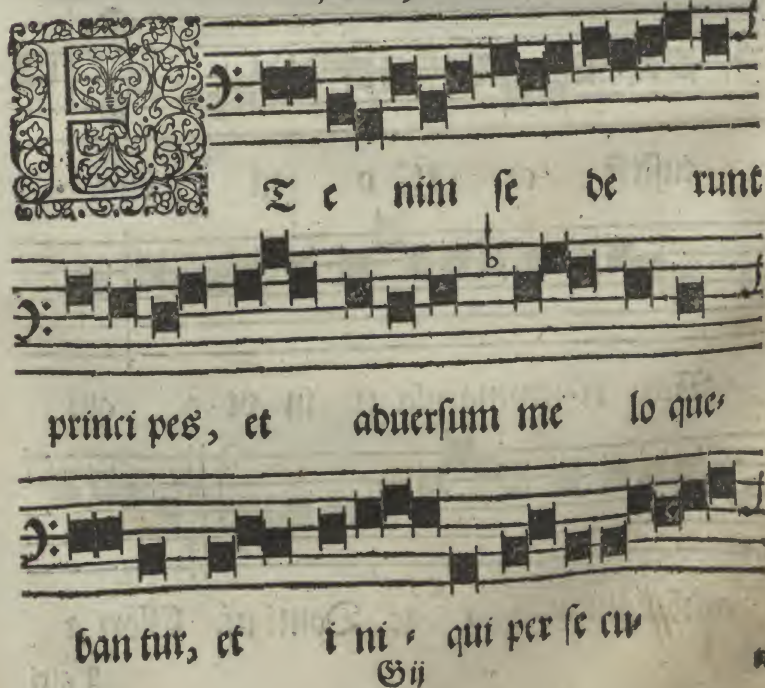 ET e nim ſe de runt
princi pes, et aduerſum me lo que⸗
ban tur, et i ni ⸗ qui per ſe cu⸗
Gij